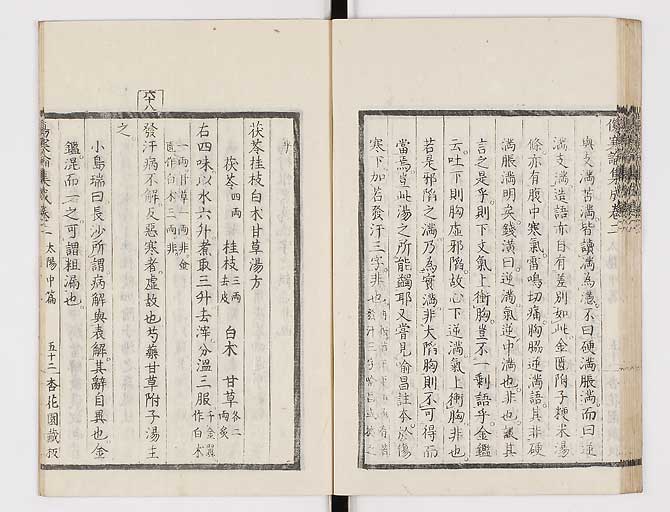 與支滿苦滿皆讀滿為懣不曰硬滿脹滿而曰逆
滿支滿造語亦自有差別如此金匱附子粳米湯
條亦有腹中寒氣雷鳴切痛胸脇逆滿語其非硬
滿脹滿明矣錢潢曰逆滿氣逆中滿也非也誤其
言之是乎則下文氣上衝胸豈不一剩語乎金鑑
云吐下則胸虛邪陷故心下逆滿氣上衝胸非也
若是邪陷之滿乃為實滿非大陷胸則不可得而
當焉豈此湯之所能蠲耶又嘗見俞昌註本於傷
寒下加若發汗三字非也
傷寒論集成卷二
茯苓桂枝白朮甘草湯方
茯苓四兩 桂枝三兩去皮 白朮 甘草各二兩炙
右四味以水六升煮取三升去滓分溫三服
一兩甘草一兩非金匱作白朮三兩非
六十八
發汗病不解反惡寒者虛故也芍藥甘草附子湯主
之
小島瑞曰長沙所謂病解與表解其辭自異也金
鑑混而一之可謂粗漏也
傷寒論集成卷二 太陽中篇 五十二 杏花園藏板